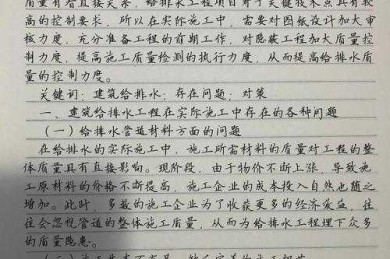 质量有着直接关系，给排水工程项目对于关键技术点具有较
高的控制要求，所以在实际施工中，需要对图纸设计加大审
核力度，充分准备工程的前期工作，对隐蔽工程加大质量控
制力度，提高施工质量检测的执行力度，从而提高给排水质
量的控制力度。
关键词：建筑给排水；存在问题；对策
一、建筑给排水工程在实际施工中存在的各种问题
（一）给排水管道材料方面的问题
在给排水的实际施工中，施工所需材料的质量对工程的整
体质量具有直接影响。现阶段，由于物价不断上涨，导致施
工原材料的价格不断提高，施工企业的成本投入自然也随之
增加。此时，多数的施工企业为了获取更多的经济效益，往
往会忽视管道的整体施工质量，从而为给排水工程埋下众多
的质量隐患。